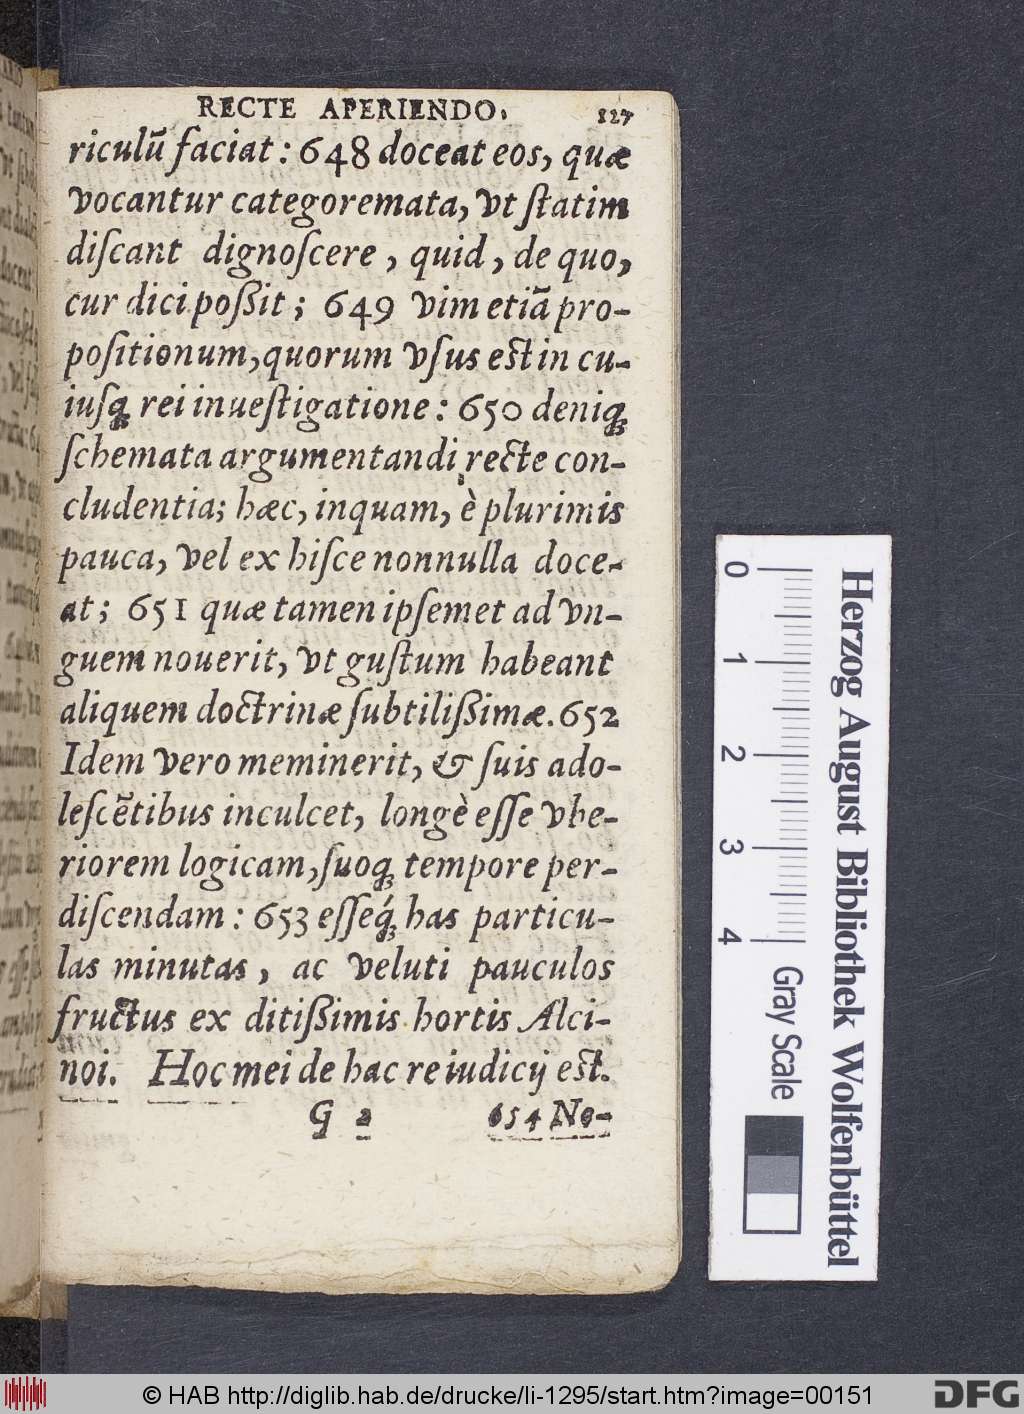 RECTE APERIENDO. 127
riculũ faciat: 648 doceat eos, quæ
vocantur categoremata, vt ſtatim
diſcant dignoſcere, quid, de quo,
cur dici poßit; 649 vim etiã pro-
poſitionum, quorum vſus eſt in cu-
iuſq; rei inueſtigatione: 650 deniq;
ſchemata argumentandi recte con-
cludentia; hæc, inquam, è plurimis
pauca, vel ex hiſce nonnulla doce-
at; 651 quæ tamen ipſemet ad vn-
guem nouerit, vt guſtum habeant
aliquem doctrinæ ſubtilißimæ. 652
Idem vero meminerit, & ſuis ado-
leſcẽtibus inculcet, longè eſſe vbe-
riorem logicam, ſuoq; tempore per-
diſcendam: 653 eſſeq́; has particu-
las minutas, ac veluti pauculos
fructus ex ditißimis hortis Alci-
noi. Hoc mei de hac re iudicij eſt.
G 2 654 Ne-
0 1 2 3 4 Gray Scale
Herzog August Bibliothek Wolfenbüttel
© HAB http://diglib.hab.de/drucke/li-1295/start.htm?image=00151
DFG